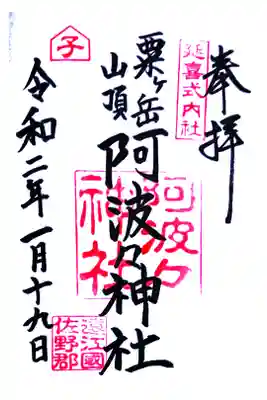 奉拝
延喜式内社
粟ヶ岳
山頂
阿波々神社
阿波々
神社
遠江國
佐野郡
子
令和二年一月十九日